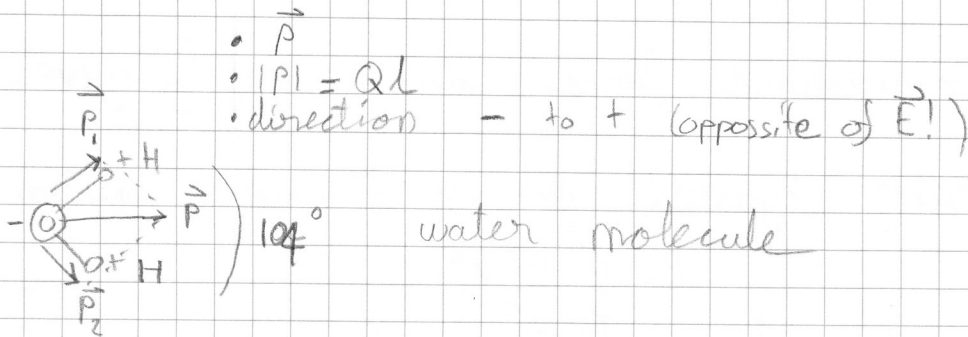 • P⃗
• |P| = Ql
• direction - to + (oppossite of E⃗!)
P⃗₁
+ H
- O P⃗ 104° water molecule
+ H
P⃗₂